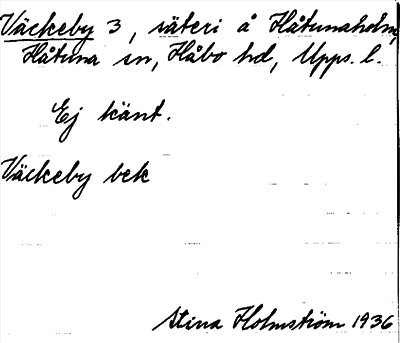 Väckeby 3, säteri å Håtunaholm,
Håtuna sn, Håbo hd, Upps. l.
Ej känt.
Väckeby bek
Stina Holmström 1936